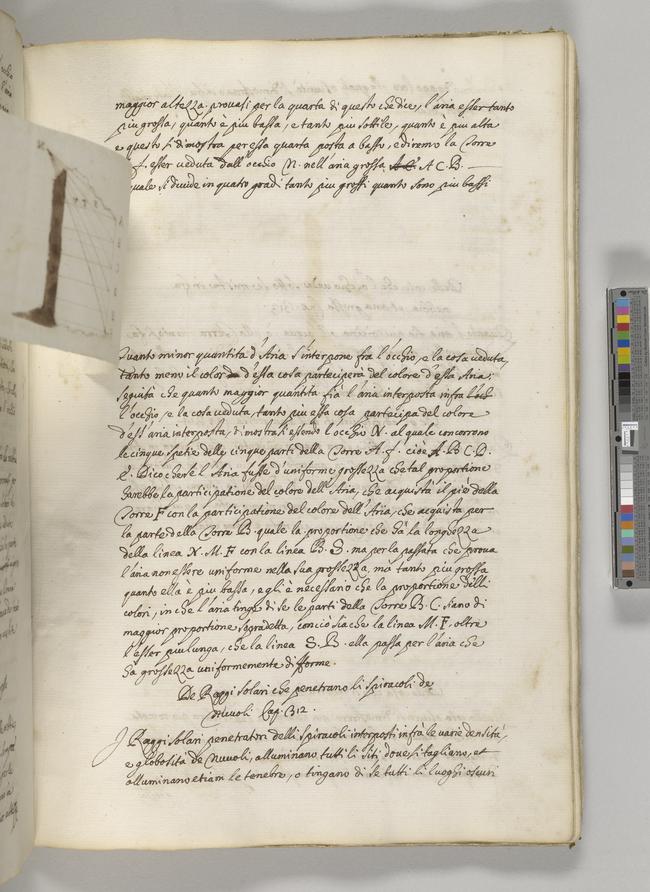 maggior altezza. prouasi per la quarta di questo che dice, l'aria esser tanto
piu grossa, quanto è piu bassa, e tanto piu sottile, quanto è piu alta
e questo si dimostra per essa quarta posta a basso, e diremo la Torre
f. esser ueduta dall'occhio N. nell'aria grossa A C. B.
quale si diuide in quatro gradi tanto piu grossi quanto sono piu bassi
Quanto minor quantita d'Aria s'interpone fra l'occhio, e la cosa ueduta,
tanto meno il color d'essa cosa parteciperà del colore d'essa Aria;
seguita che quanto maggior quantita fia l'aria interposta infra
l'occhio, e la cosa ueduta, tanto piu essa cosa partecipa del colore
d'ess'aria interposta, si mostra si essendo l'occhio N. al quale concorrono
le cinque spetie delle cinque parti della Torre A. f. cioe A. B C. D.
E. Dico che se l'Aria fusse d'uniforme grossezza che tal proportione
harebbe la participatione del colore dell'Aria, che acquista il pie della
Torre F con la participatione del colore dell'Aria, che acquista per
la parte della Torre B. quale la proportione che hà la longhezza
della linea N. M. F con la linea B. S. ma per la passata che proua
l'aria non essere uniforme nella sua grossezza, ma tanto piu grossa
quanto ella è piu bassa, egli è necessario che la proportione delli
colori, in che l'aria tinge di se le parti della Torre B. C. siano di
maggior proportione sopradetta, conciò sia che la linea M. F. oltre
l'esser piu lunga, che la linea S. B. ella passa per l'aria che
ha grossezza uniformemente difforme.
De Raggi solari che penetrano li spiracoli de
Nuuoli Cap. 312.
J Raggi solari penetratori delli spiracoli interposti infrà le uarie densità,
e globosità de Nuuoli, alluminano tutti li siti doue si tagliano, et
alluminano etiam le tenebre, o tingano di se tutti li luoghi oscuri